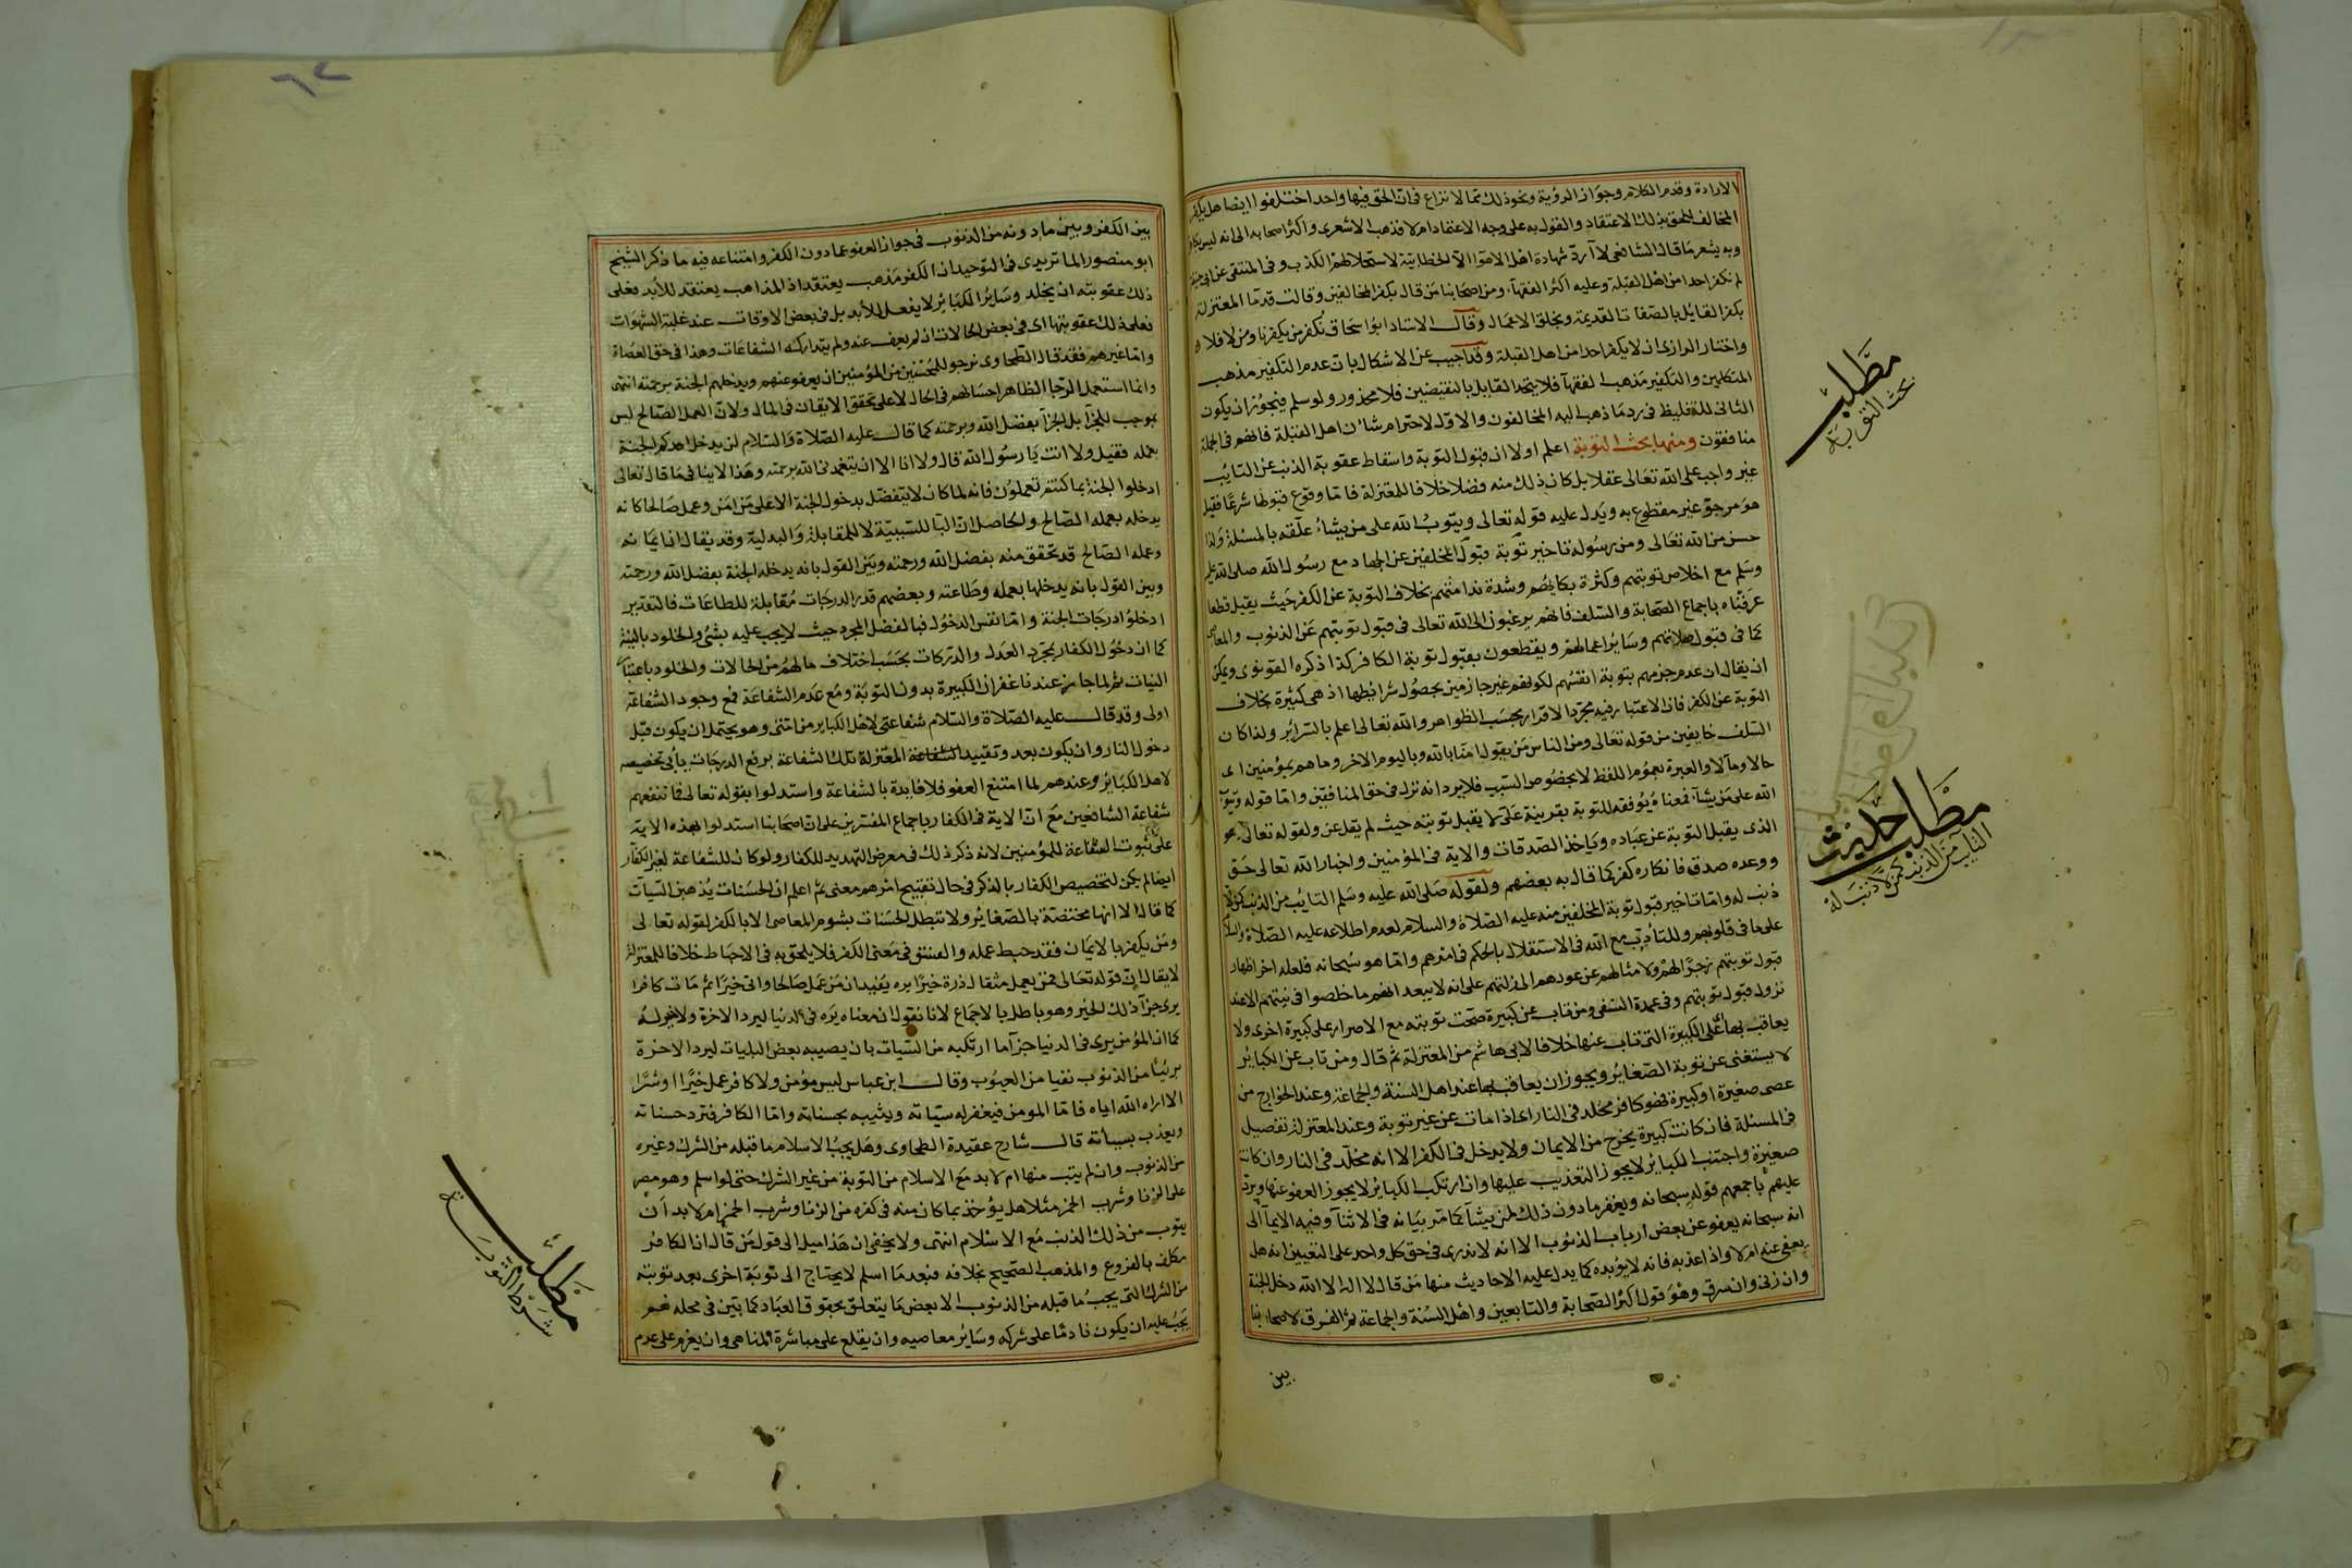 الارادة وقدم الكلام وجواز الرؤية ونحو ذلك مما لا نزاع فى ان الحق فيها واحد اختلفوا ايضا هل يكفر
المخالف للحق بذلك الاعتقاد والقول به على وجه الاعتقاد ام لا فذهب الاشعرى واكثر اصحابه الى انه ليس بكافر
وبه يشعر ما قال الشافعى لا آردّ شهادة اهل الاهوا الا الخطابية لاستحلالهم الكذب وفى المنتقى عن ابى حنيفة
لم نكفر احدا من اهل القبلة وعليه اكثر الفقهآء ومن اصحابنا من قال بكفر المخالفين وقالت قدما المعتزلة
بكفر القائل بالصفات القديمة وبخلق الاعمال وقال الاستاد ابو اسحاق نكفر من يكفرنا ومن لا فلا
واختار الرازى ان لا يكفر احدا من اهل القبلة وقد اجيب عن الاشكال بان عدم التكفير مذهب
المتكلمين والتكفير مذهب الفقهآ فلا يتحد القايل بالنقيضين فلا محذور ولو سلم فيجوز ان يكون
الثانى للتغليظ فى رد ما ذهب اليه المخالفون والاول لاحترام شان اهل القبلة فانهم فى الجملة
منافقون ومنها بحث التوبة اعلم اولا ان قبول التوبة واسقاط عقوبة الذنب عن التايب
غير واجب على الله تعالى عقلا بل كان ذلك منه فضلا خلافا للمعتزلة فاما وقوع قبولها شرعًا فقيل
هو مرجوّ غير مقطوع به ويدل عليه قوله تعالى ويتوب الله على من يشاء علّقه بالمسئلة ولذا
حسن من الله تعالى ومن رسوله تاخير توبة قبول المخلفين عن الجهاد مع رسول الله صلى الله عليه
وسلم مع اخلاص توبتهم وكثرة بكايهم وشدة ندامتهم بخلاف التوبة عن الكفر حيث يقبل قطعا
عرفناه باجماع الصحابة والسلف فانهم يرغبون الى الله تعالى فى قبول توبتهم عن الذنوب والمعاصى
كما فى قبول صلاتهم وسائر اعمالهم ويقطعون بقبول توبة الكافر كذا ذكره القونوى ويمكن
ان يقال ان عدم جزمهم بتوبة انفسهم لكونهم غير جازمين بحصول شرايطها اذ هى كثيرة بخلاف
التوبة عن الكفر فان الاعتبار فيه مجرد الاقرار بحسب الظواهر والله تعالى اعلم بالسرائر ولذا كان
السلف خايفين من قوله تعالى ومن الناس من يقول امنا بالله وباليوم الاخر وما هم بمؤمنين اى
حالا ومآلا والعبرة بعموم اللفظ لا بخصوص السبب فلا يرد انه نزل فى حق المنافقين واما قوله ويتوب
الله على من يشآ فمعناه يوفقه للتوبة بقرينة على لا يقبل توبته حيث لم يقل عن ولقوله تعالى هو
الذى يقبل التوبة عن عباده وياخذ الصدقات والاية فى المؤمنين واخبار الله تعالى حق
ووعده صدق فانكاره كفر كما قال به بعضهم ولقوله صلى الله عليه وسلم التايب من الذنب كمن لا
ذنب له واما تاخير قبول توبة المخلفين منه عليه الصلاة والسلام لعدم اطلاعه عليه الصلاة والسلام
على ما فى قلوبهم وللتأدب مع الله فى الاستقلال بالحكم فى امرهم واما هو سبحانه فلعله اخر اظهار
قبول توبتهم زجرًا لهم ولامثالهم عن عودهم الى زلتهم على انه لا يبعد انهم ما خلصوا فى نيتهم الا عند
نزول قبول توبتهم وفى عمدة النسفى ومن تاب عن كبيرة صحّت توبته مع الاصرار على كبيرة اخرى ولا
يعاقب بها على الكبيرة التى تاب عنها خلافا لابى هاشم من المعتزلة ثم قال ومن تاب عن الكبائر
لا يستغنى عن توبة الصغائر ويجوز ان يعاقب بها عند اهل السنة والجماعة وعند الخوارج من
عصى صغيرة او كبيرة فهو كافر مخلد فى النار اى اذا مات عن غير توبة وعند المعتزلة تفصيل
فى المسئلة فان كانت كبيرة يخرج من الايمان ولا يدخل فى الكفر الا انه مخلّد فى النار وان كانت
صغيرة واجتنب الكبائر لا يجوز التعذيب عليها وان ارتكب الكبائر لا يجوز العفو عنها ويرد
عليهم باجمعهم قوله سبحانه ويغفر ما دون ذلك لمن يشآ كما مر بيانه فى الاثنآ وفيه الايمآ الى
انه سبحانه يعفو عن بعض ارباب الذنوب الا انه لا ندرى فى حق كل واحد على التعيين انه هل
يعفى عنه ام لا واذا عذبه فانه لا يؤبده كما يدل عليه الاحاديث منها من قال لا اله الا الله دخل الجنة
وان زنى وان سرق وهو قول اكثر الصحابة والتابعين واهل السنة والجماعة ثم الفرق لاصحابنا
بين
مطلب
بحث التوبة
مطلب حديث
التايب من الذنب كمن لا ذنب له
بين الكفر وبين ما دونه من الذنوب فى جواز العفو عما دون الكفر وامتناعه فيه ما ذكر الشيخ
ابو منصور الماتريدى فى التوحيد ان الكفر مذهب يعتقد اذ المذاهب يعتقد للأبد فعلى
ذلك عقوبته ان يخلد وسائر الكبائر لا يفعل للأبد بل فى بعض الاوقات عند غلبة الشهوات
فعلى ذلك عقوبتها اى فى بعض الحالات ان لم يعف عنه ولم يتداركه الشفاعات وهذا فى حق العصاة
واما غيرهم فقد قال الطحاوى نرجو للمحسنين من المؤمنين ان يعفو عنهم ويدخلهم الجنة برحمته انتهى
وانما استعمل الرجا الظاهر احسانهم فى الحال لا على تحقق الايقان فى المال ولان العمل الصالح ليس
بموجب للجزآ بل الجزآ بفضل الله وبرحمته كما قال عليه الصلاة والسلام لن يدخل احدكم الجنة
بعمله فقيل ولا انت يا رسول الله قال ولا انا الا ان يتغمدنى الله برحمته وهذا لا ينافى ما قال تعالى
ادخلوا الجنة بما كنتم تعملون فانه لما كان لا يتفضل بدخول الجنة الا على من امن وعمل صالحا كانه
يدخله بعمله الصالح والحاصل ان البا للسببية لا للمقابلة والبدلية وقد يقال ان ايمانه
وعمله الصالح قد تحقق منه بفضل الله ورحمته وبين القول بانه يدخله الجنة بفضل الله ورحمته
وبين القول بانه يدخلها بعمله وطاعته وبعضهم قدر الدرجات مقابلة للطاعات فالتقدير
ادخلوا درجات الجنة واما نفس الدخول فبالفضل المجرد حيث لا يجب عليه بشئ والخلود بالنية
كما ان دخول الكفار بمجرد العدل والدركات بحسب اختلاف ما لهم من الحالات والخلود باعتبار
النيات ثم لما جاز عندنا غفران الكبيرة بدون التوبة ومع عدم الشفاعة فمع وجود الشفاعة
اولى وقد قال عليه الصلاة والسلام شفاعتى لاهل الكباير من امتى وهو يحتمل ان يكون قبل
دخول النار وان يكون بعد وتقييد المعتزلة تلك الشفاعة برفع الدرجات يأبى تخصيصه
لاهل الكبائر وعندهم لما امتنع العفو فلا فايدة بالشفاعة واستدلوا بقوله تعالى فما تنفعهم
شفاعة الشافعين مع ان الاية فى الكفار باجماع المفسرين على ان اصحابنا استدلوا بهذه الاية
على ثبوت الشفاعة للمؤمنين لانه ذكر ذلك فى معرض التهديد للكفار ولو كان للشفاعة لغير الكفار
ايضا لم يكن لتخصيص الكفار بالذكر فى حال تقبيح امرهم معنى ثم اعلم ان الحسنات يذهبن السيآت
كما قال الا انها مختصة بالصغائر ولا تبطل الحسنات بشوم المعاصى الا بالكفر لقوله تعالى
ومن يكفر بالايمان فقد حبط عمله والفسق فى معنى الكفر فلا يلحق به فى الاحباط خلافا للمعتزلة
لا يقال ان قوله تعالى فمن يعمل مثقال ذرة خيرًا يره يفيد ان من عمل صالحا واتى خيرًا ثم مات كافرا
يرى جزآ ذلك الخير وهو باطل بالاجماع لانا نقول ان معناه يره فى الدنيا ليرد الاخرة ولا خير له
كما ان المؤمن يرى فى الدنيا جزآ ما ارتكبه من السيئات بان يصيبه بعض البليات ليرد الاخرة
بريئا من الذنوب نقيا من العيوب وقال ابن عباس ليس مؤمن ولا كافر عمل خيرا او شرا
الا اراه الله اياه فاما المومن فيغفر له سيئاته ويثيبه بحسناته واما الكافر فترد حسناته
ويعذب بسيأته قال شارح عقيدة الطحاوى وهل يجبّ الاسلام ما قبله من الشرك وغيره
من الذنوب وان لم يتب منها ام لا بد مع الاسلام من التوبة من غير الشرك حتى لو اسلم وهو مصر
على الزنا وشرب الخمر مثلا هل يؤخذ بما كان منه فى كفره من الزنا وشرب الخمر ام لا بد ان
يتوب من ذلك الذنب مع الاسلام انتهى ولا يخفى ان هذا ميل الى قول من قال ان الكافر
مكلف بالفروع والمذهب الصحيح بخلافه فبعد ما اسلم لا يحتاج الى توبة اخرى بعد توبته
من الشرك التى يجب ما قبله من الذنوب الا بعض ما يتعلق بحقوق العباد كما بيّن فى محله نعم
يجب عليه ان يكون نادمًا على شركه وسائر معاصيه وان يقلع على مباشرة المناهى وان يعزم على عدم
مطلب
شروط التوبة